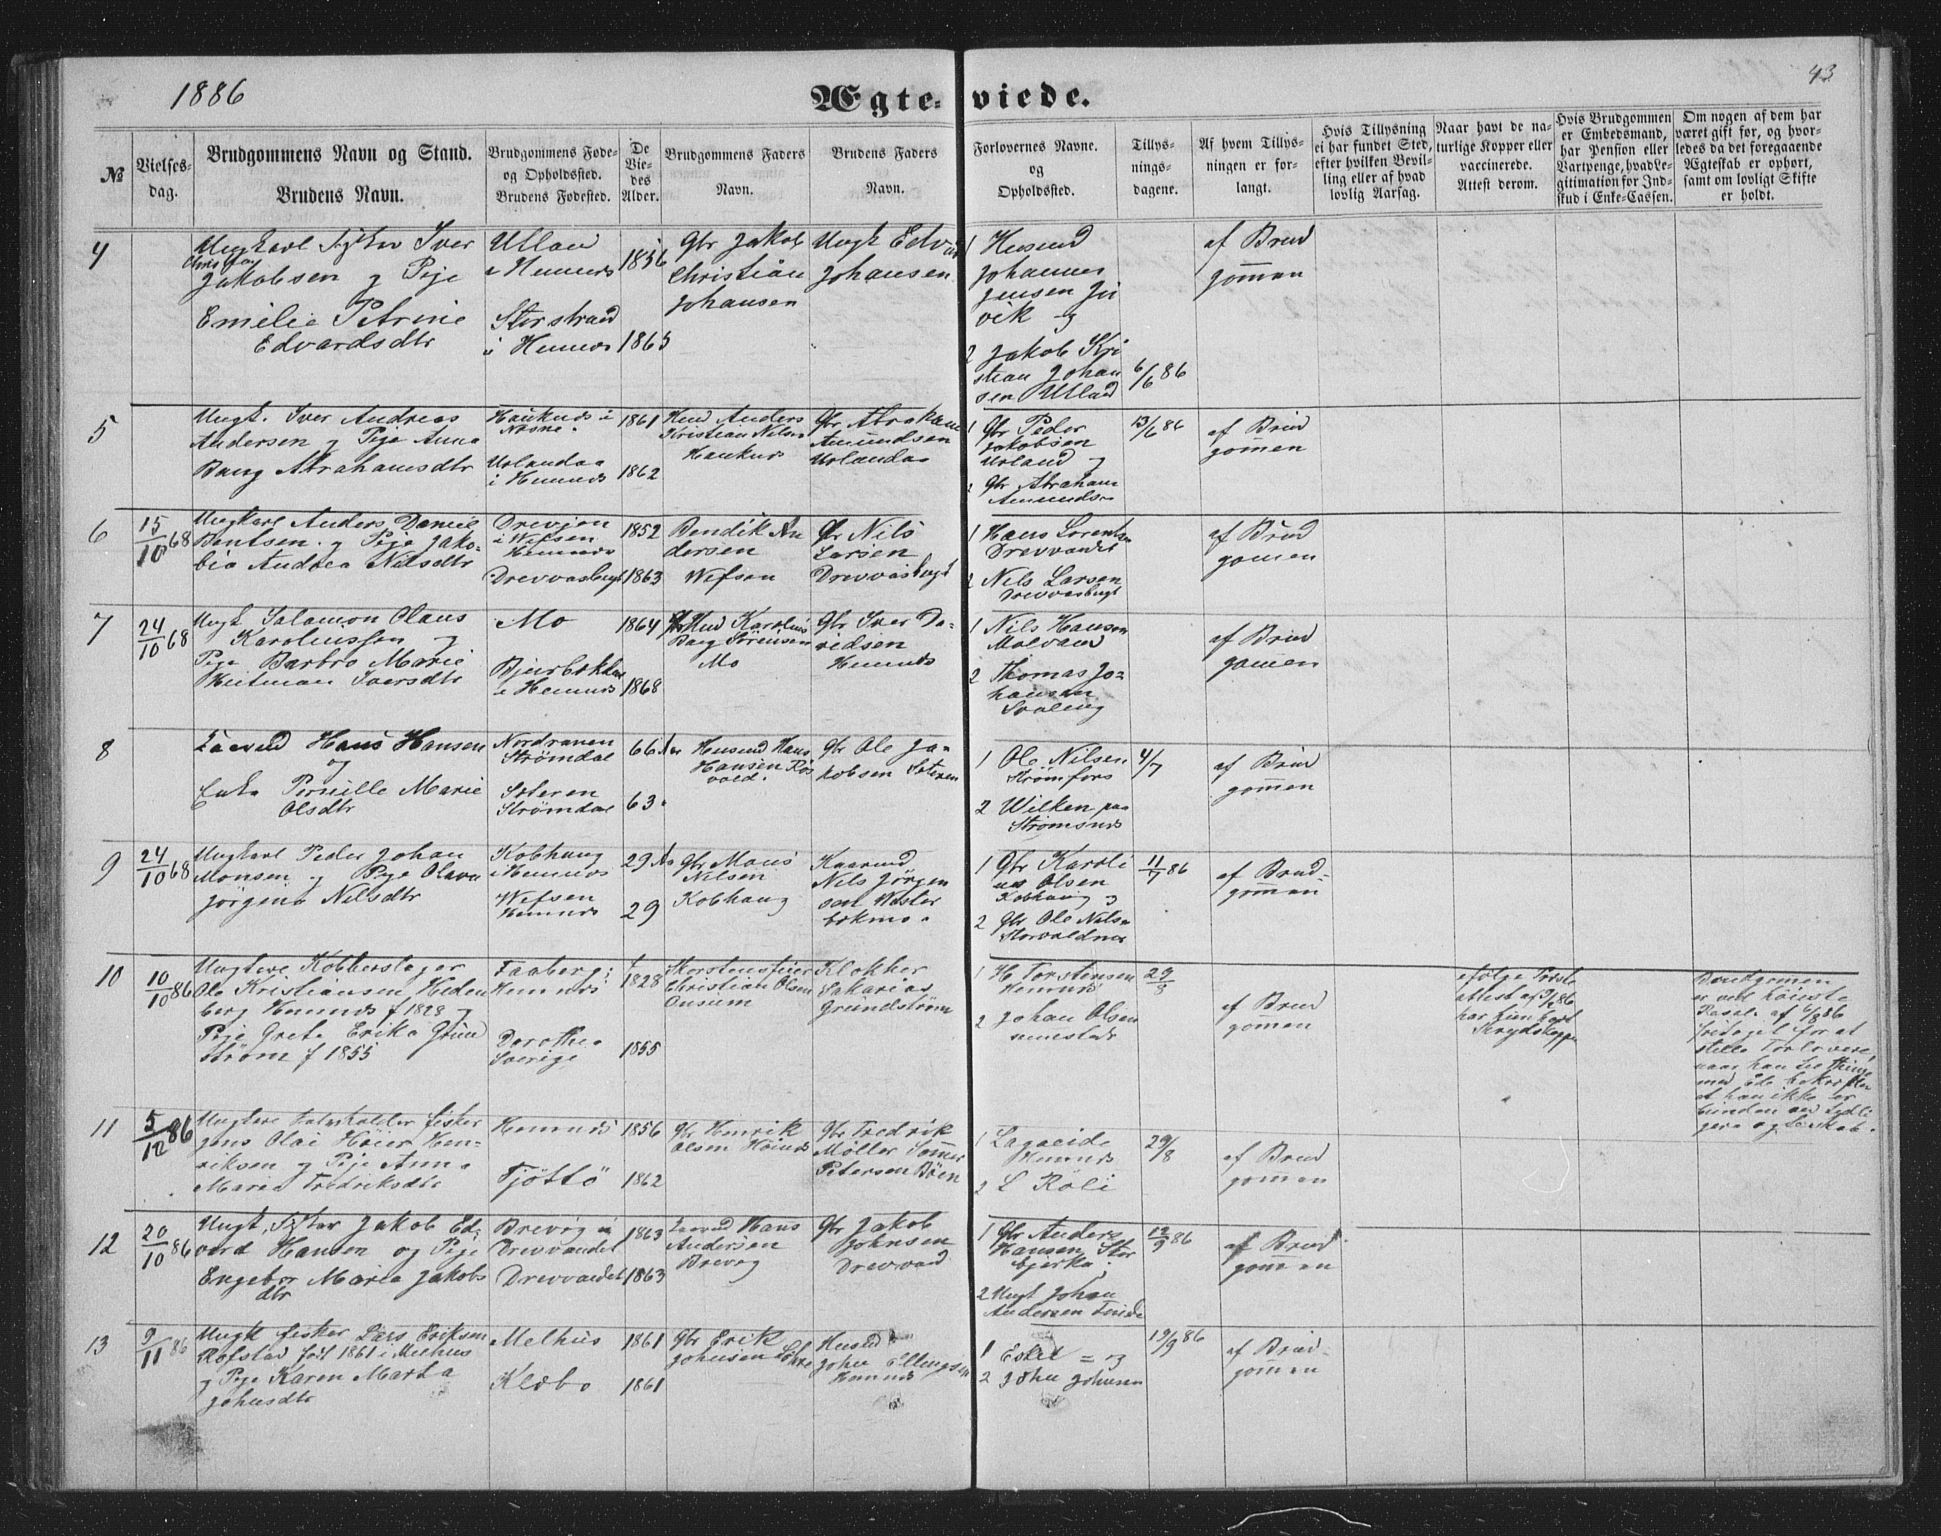 1886
Ægte-viede.
43
№
Vielses-
dag.
Brudgommens Navn og Stand.
Brudens Navn.
Brudgommens Føde-
og Opholdssted.
Brudens Fødested.
De
Vie-
des
Alder.
Brudgommens Faders
Navn.
Brudens Faders
Navn.
Forlovernes Navne.
og
Opholdssted.
Tillys-
nings-
dagene.
Af hvem Tillys-
ningen er for-
langt.
Hvis Tillysning
ei har fundet Sted,
efter hvilken Bevil-
ling eller af hvad
lovlig Aarsag.
Naar havt de na-
turlige Kopper eller
vaccinerede.
Attest derom.
Hvis Brudgommen
er Embedsmand,
har Pension eller
Vartpenge, hvad Le-
gitimation for Ind-
skud i Enke-Cassen.
Om nogen af dem har
været gift før, og hvor-
ledes da det foregaaende
Ægteskab er ophørt,
samt om lovligt Skifte
er holdt.
4
Ungkarl Iver
Jakobsen og Pige
Emilie Petrine
Edvardsdtr
Utland
i Hemnes
Storstrand
i Hemnes
1856
1865
Gbr Jakob
Christian
Johansen
Ungk Edvard
Johansen
1 Husmd
Johannes
Jensen
vik og
2 Jakob Kri
stian Johan
sen Utland
6/6 86
af Brud
gommen
5
Ungk. Iver Andreas
Andersen og Pige Anna
Bang Abrahamsdtr
Hauknes i
Næsne
Urlandaa
i Hemnes
1861
1862
Hmd Anders
Kristian Nilsen
Hauknes
Gbr Abraham
Amundsen
Urlandaa
1 Gbr Peder
Jakobsen
Urland og
2 Gbr Abraham
Amundsen
13/6 86
af Brud
gommen
6
15/10 68
Ungkarl Anders Daniel
Bentsen og Pige Jako-
bia Andrea Nilsdtr
Drevjen
i Vefsen
Hemnes
Drevvasbugt
1852
1863
Bendik An
dersen
Vefsen
Gbr Nils
Larsen
Drevvasbugt
1 Hans Lorentsen
Drevvandet
2 Nils Larsen
Drevvasbugt
af Brud
gomen
7
24/10 68
Ungk Salamon Olaus
Karoliussen og
Pige Barbro Marie
Heitman Iversdtr
Mo
i Hemnes
1864
1868
Hmd Karolius
Bang Sörensen
Mo
Gbr Iver Da-
vidsen
Hemnes
1 Nils Hansen
Molvand
2 Thomas Jo-
hansen
af Brud
gomen
8
Hans Hansen
og
Enke Pernille Marie
Olsdtr
Nordranen
Strømdal
Sæteren
Strømdal
66 Aar
63
Husmd Hans
Hansen Ros
vold
Gbr Ole Ja-
kobsen Sæteren
1 Ole Nilsen
Strømfors
2 Wilken paa
Strømsnes
4/7
af Brud
gommen
9
24/10 68
Ungkarl Peder Johan
Monsen og Pige Olava
Jørgine Nilsdtr
Kobhaug
i Hemnes
Vefsen
Hemnes
29 Aar
29
Gbr Mons
Nilsen
Kobhaug
Nils Jörgen
sen Vester
bekmo
1 Gbr Karoli
us Olsen
Kobhaug og
2 Gbr Ole Nilsen
Storvoldnes
11/7 86
af Brud-
gommen
10
10/10 86
Ungkarl Kobberslager
Ole Kristiansen Heden
berg Hemnes f 1828 og
Pige Grete Erika Grund
strøm f 1855
Faaberg i
Hemnes
Dorothea
Sverige
1828
1855
Skorstensfeier
Christian Olsen
Klokker
Sakarias
Grundstrøm
1 H Torstensen
Hemnes
2 Johan Olsen
29/8
af Brud
gomen
ifølge Præste
attest af
har hun havt
Brudgomen
er ved høieste
Resol. af 6/8 86
fritaget for at
stille Forlovere,
naar han til Thinge
med Æd bekræfter
at han ikke er
bunden ved tidli
gere Ægteskab.
11
5/12 86
Ungkarl fisker
Jens Olai Høier Hen-
riksen og Pige Anna
Maria Fredriksdtr
Hemnes
Tjöttö
1856
1862
Gbr Henrik
Olsen
Gbr Fredrik
Möller
Petersen Böen
1
Hemnes
2 L Röli
29/8
af Brud
gomen
12
20/10 86
Ungk. Jakob Ed-
vard Hansen og Pige
Engebor Maria Jakobs
dtr
Brevig i
Drevvandet
Drevvandet
1863
1863
Hans
Andersen
Brevig
Gbr Jakob
Johnsen
Drevvand
1 Gbr Anders
Hansen Stor
bjerka
2 Ungk Johan
Andersen
12/9 86
af Brud
gommen
13
9/11 86
Ungk fisker Lars Eriksen
Rofstad født 1861 i Melhus
og Pige Karen Marta
Johnsdtr
Melhus
Klæbo
1861
1861
Gbr Erik
Johnsen
Husmd
John Ellingsen
Hemnes
1 Eskel = og
2 John Johnsen
19/9 86
af Brud-
gommen